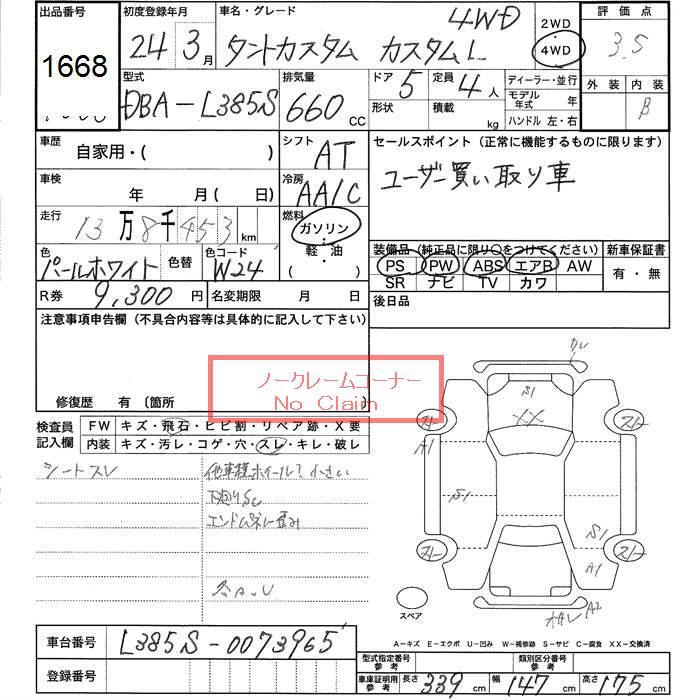 出品番号 初度登録年月 車名・グレード 4WD 2WD 評価点
1668 24年 3月 タントカスタム カスタムL ・4WD 3.5
型式 排気量 ドア 5 定員 4人 ディーラー・並行 外装 内装
DBA-L385S 660cc 形状 積載 kg モデル年式 年 B
ハンドル 左・右
車歴 自家用・( ) シフト AT セールスポイント(正常に機能するものに限ります)
車検 年 月( 日) 冷房 AA/C ユーザー買い取り車
走行 13万8千453km 燃料 ガソリン・軽油・( )
色 パールホワイト 色替 色コード W24 装備品(純正品に限り○をつけてください) 新車保証書
PS PW ABS エアB AW 有・無
SR ナビ TV カワ
R券 9,300円 名変期限 月 日 後日品
注意事項申告欄(不具合内容等は具体的に記入して下さい)
ノークレームコーナー
No Claim
修復歴 有〔箇所 〕
検査員記入欄 FW キズ・飛石・ヒビ割・リペア跡・X要
内装 キズ・汚レ・コゲ・穴・スレ・キレ・破レ
シートスレ
下廻りSC
エンドパネル歪み
S1
XX
A1
S1
S1
A1
A2
スペア
A-キズ E-エクボ U-凹み W-補修跡 S-サビ C-腐食 XX-交換済
車台番号 L385S-0073965
登録番号
型式指定番号参考 類別区分番号参考
車庫証明用参考 長さ 339cm 幅 147cm 高さ 175cm